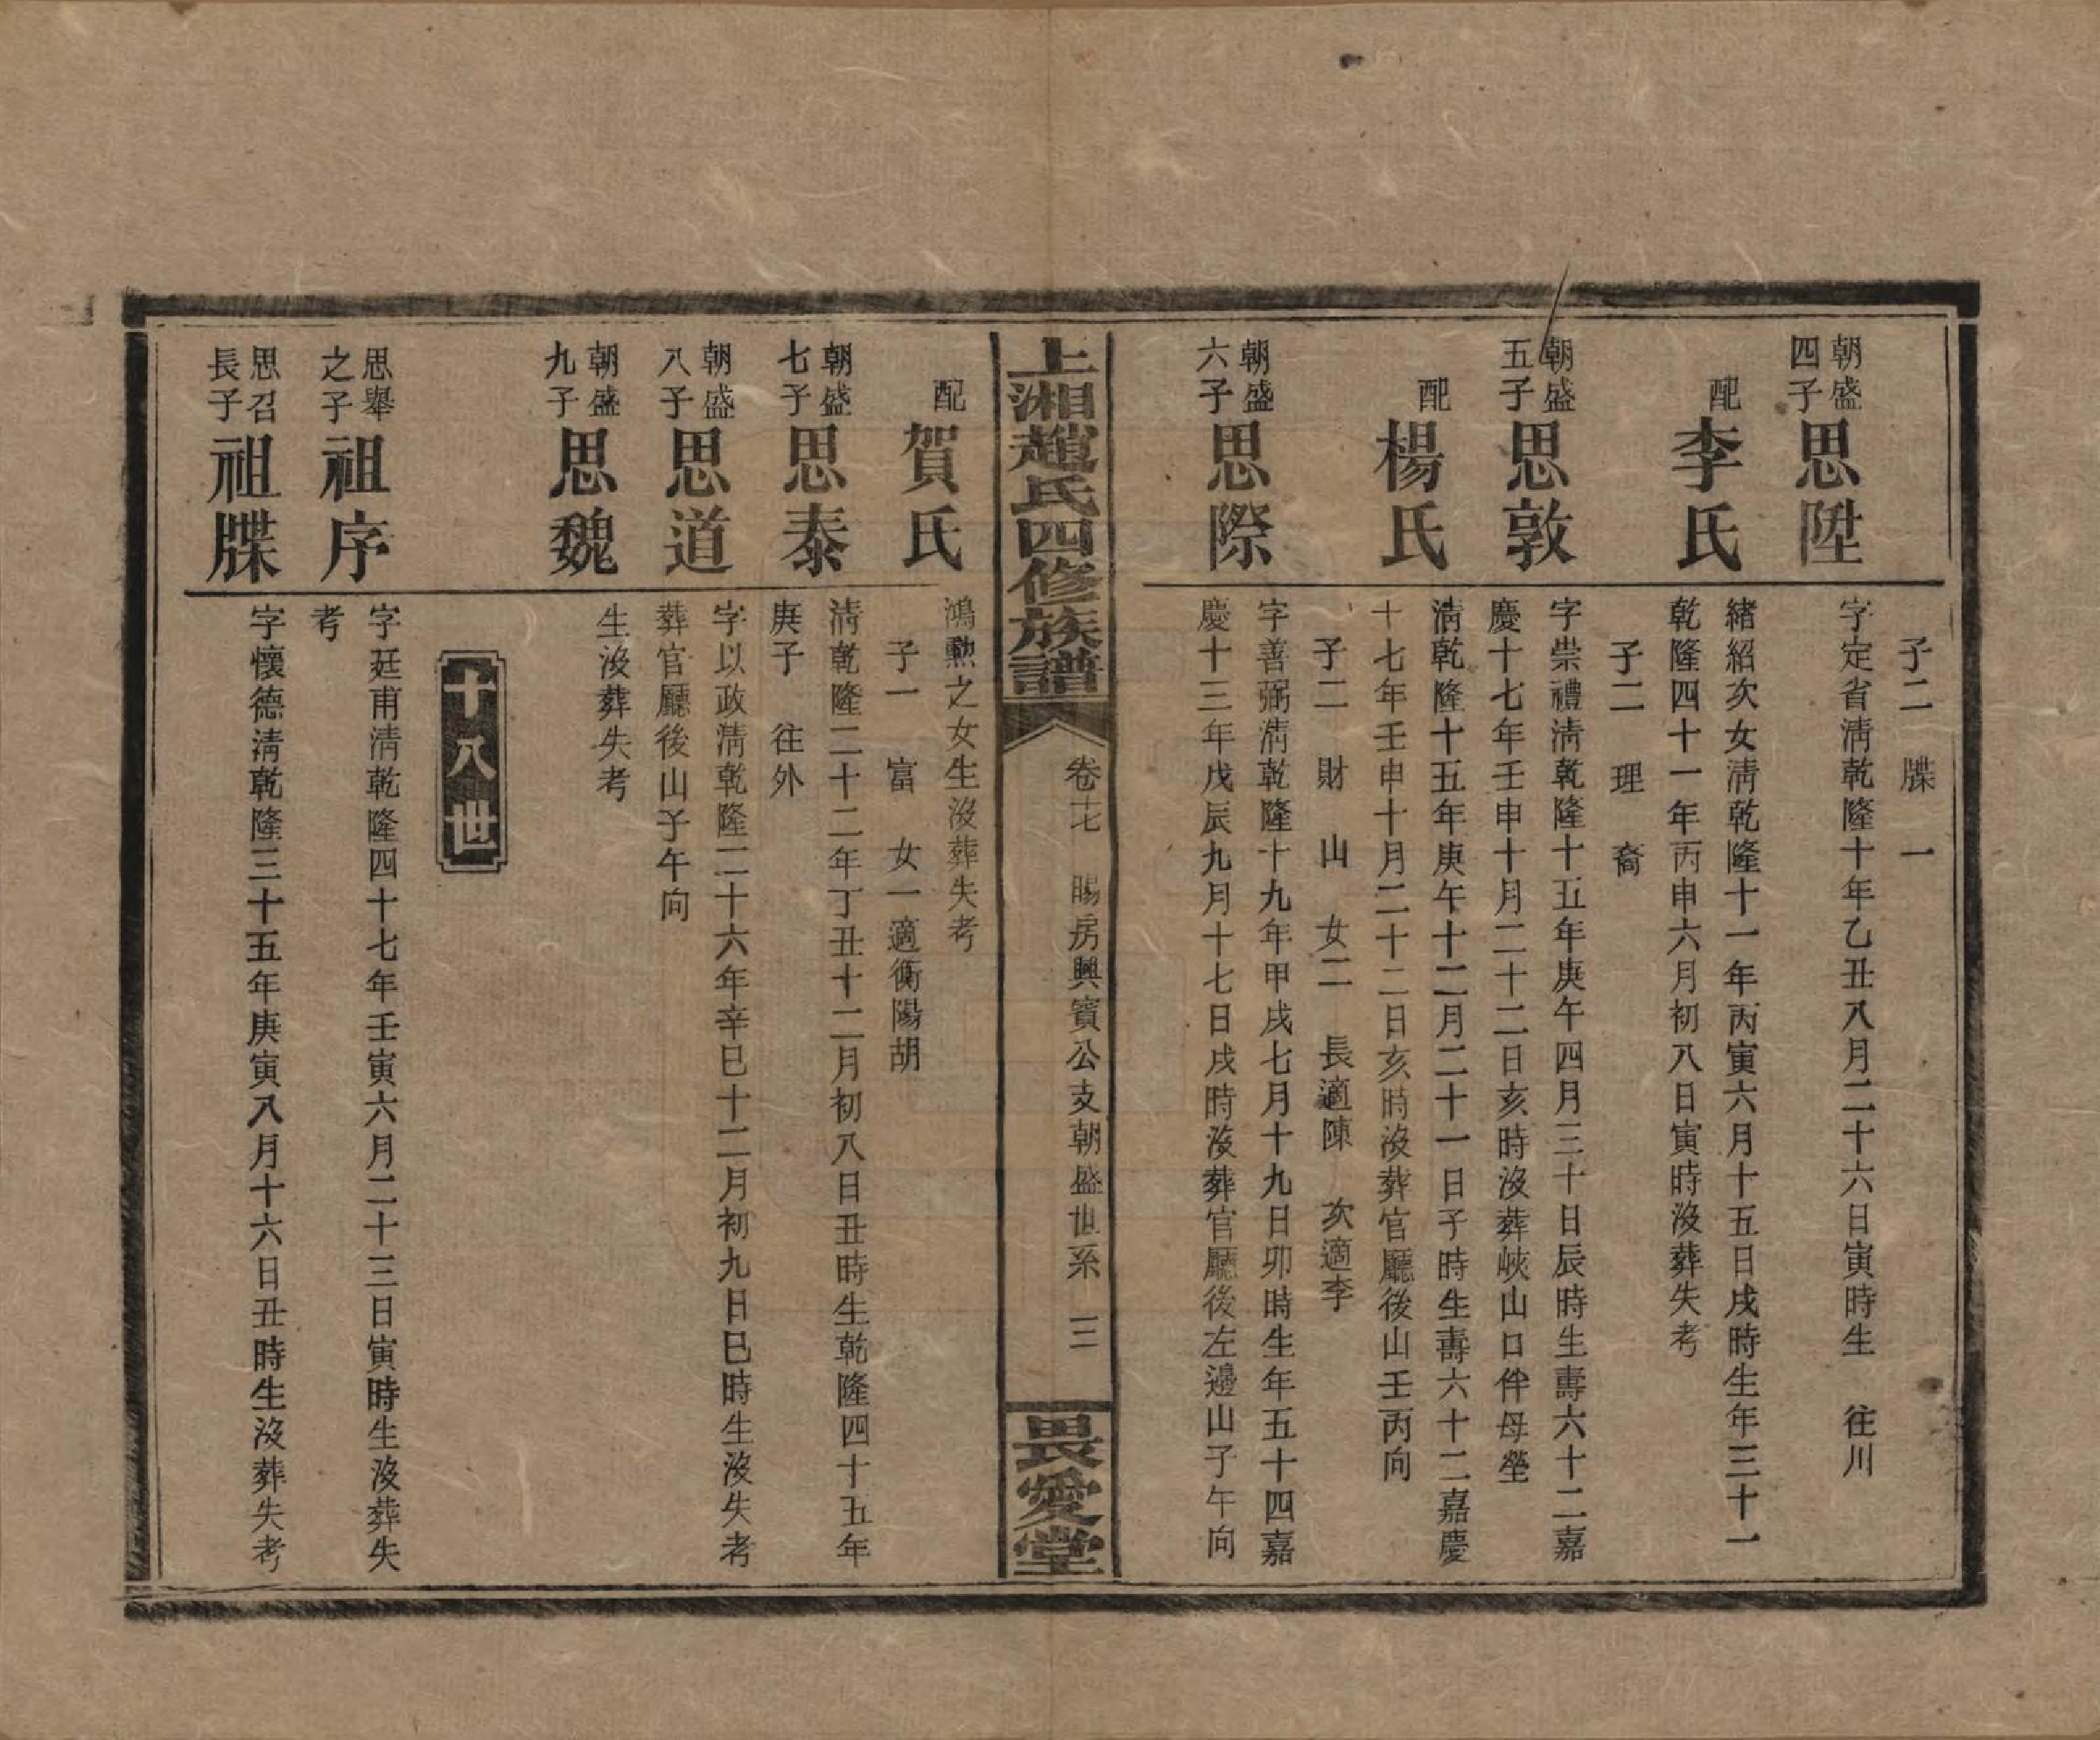 子二　牒　一
朝盛四子思陞
字定省淸乾隆十年乙丑八月二十六日寅時生　往川
配李氏
緖紹次女淸乾隆十一年丙寅六月十五日戌時生年三十一
乾隆四十一年丙申六月初八日寅時沒葬失考
子二　理　裔
朝盛五子思敦
字崇禮淸乾隆十五年庚午四月三十日辰時生壽六十二嘉
慶十七年壬申十月二十二日亥時沒葬峽山口伴母塋
配楊氏
淸乾隆十五年庚午十二月二十一日子時生壽六十二嘉慶
十七年壬申十月二十二日亥時沒葬官廳後山壬丙向
子二　財　山　女二　長適陳　次適李
朝盛六子思際
字善弼淸乾隆十九年甲戌七月十九日卯時生年五十四嘉
慶十三年戊辰九月十七日戌時沒葬官廳後左邊山子午向
上湘趙氏四修族譜
卷十七　賜房興賓公支朝盛世系　三
畏愛堂
配賀氏
鴻勲之女生沒葬失考
子一　富　女一適衡陽胡
朝盛七子思泰
淸乾隆二十二年丁丑十二月初八日丑時生乾隆四十五年
庚子　往外
朝盛八子思道
字以政淸乾隆二十六年辛巳十二月初九日巳時生沒失考
葬官廳後山子午向
朝盛九子思魏
生沒葬失考
十八世
思舉之子祖序
字廷甫淸乾隆四十七年壬寅六月二十三日寅時生沒葬失
考
思召長子祖牒
字懷德淸乾隆三十五年庚寅八月十六日丑時生沒葬失考